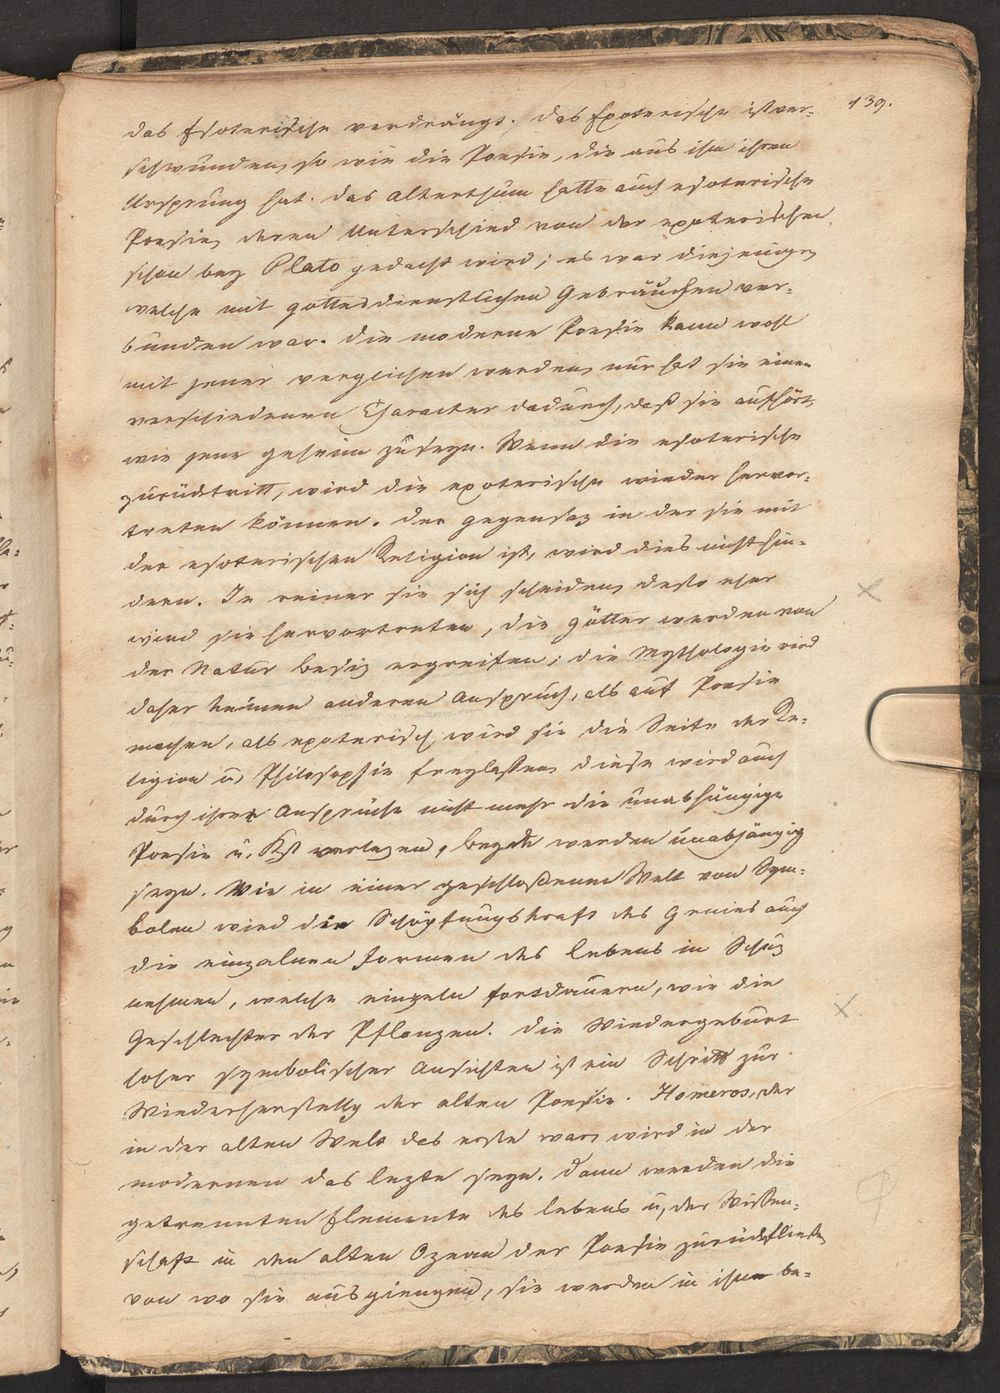 139.
das Esoterische verdrängt. das Exoterische ist ver-
schwunden, so wie die Poesie, die aus ihm ihren
Ursprung hat. das Alterthum hatte auch esoterische
Poesie, deren Unterschied von der exoterischen
schon bey Plato gedacht wird; es war diejenige,
welche mit gottesdienstlichen Gebräuchen ver-
bunden war. die moderne Poesie kann wohl
mit jener verglichen werden, nur hat sie einen
verschiedenen Character dadurch, daß sie aufhört,
wie jene geheim zu seyn. Wenn die esoterische
zurücktritt, wird die exoterische wieder hervor-
treten können. der Gegensaz in der sie mit
der esoterischen Religion ist, wird dies nicht hin-
dern. Je reiner sie sich scheiden, desto eher
wird sie hervortreten, die Götter werden von
der Natur Besiz ergreifen; die Mythologie wird
daher keinen anderen Anspruch, als auf Poesie
machen, als exoterisch wird sie die Seite der Re-
ligion u. Philosophie freylassen, diese wird auch
durch ihre Ansprüche nicht mehr die unabhängige
Poesie u. Kst verlezen, beyde werden unabhängig
seyn. Wie in einer geschloßenen Welt von Sym-
bolen wird die Schöpfungskraft des Genies auch
die einzelnen Formen des Lebens in Schuz
nehmen, welche einzeln fortdauern, wie die
Geschlechter der Pflanzen. die Wiedergeburt
hoher symbolischer Ansichten ist ein Schritt zur
Wiederherstellg der alten Poesie. Homeros, der
in der alten Welt das erste war, wird in der
modernen das lezte seyn. dann werden die
getrennten Elemente des Lebens u. der Wißen-
schaft in den alten Ozean der Poesie zurückfließen
von wo sie ausgiengen, sie werden in ihm be-